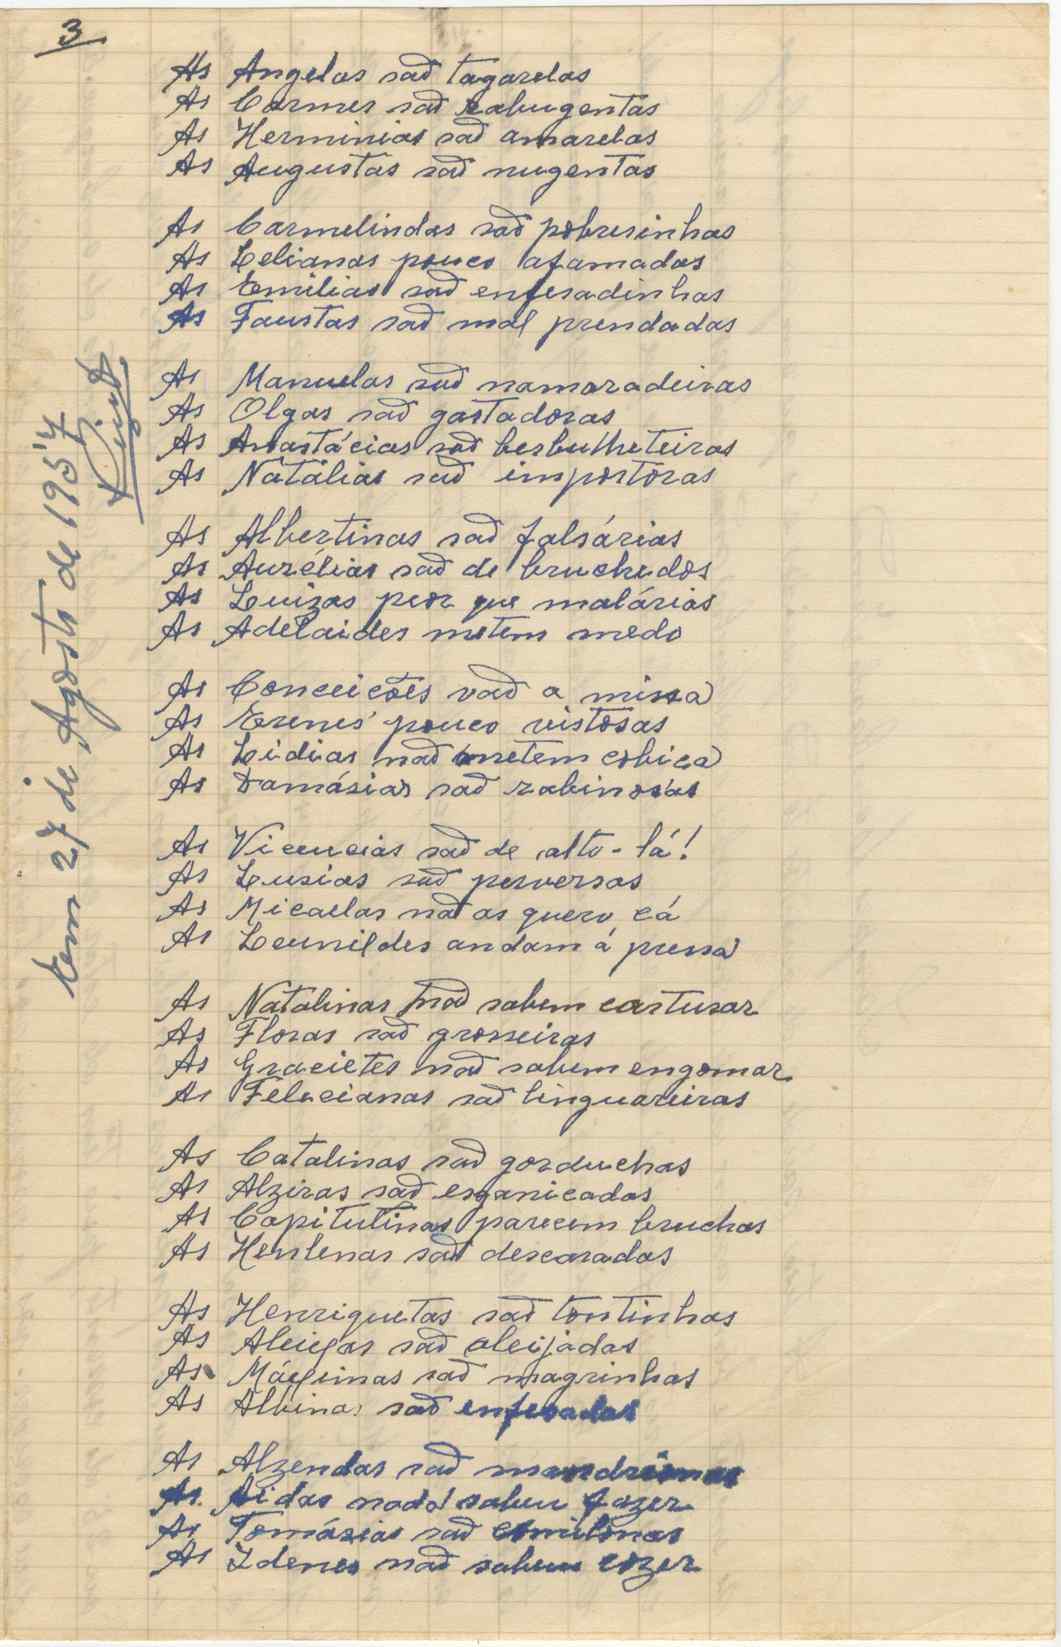 3
As Angelas são tagarelas
As Carmes são rabugentas
As Herminias são amarelas
As Augustas são nugentas
As Carmelindas são pobresinhas
As Lelianas pouco afamadas
As Emilias são enfesadinhas
As Faustas são mal prendadas
As Manuelas são namoradeiras
As Olgas são gastadoras
As Anastácias são besbulheteiras
As Natálias são impostoras
As Albertinas são falsárias
As Aurélias são de bruchedos
As Luizas peor que malárias
As Adelaides metem medo
As Conceicões vão a missa
As Erenes pouco vistosas
As Lidias não metem cobiça
As Damásias são rabinosas
As Vicencias são de alto-lá!
As Lusias são perversas
As Micaelas não as quero cá
As Leunildes andam á pressa
As Natalinas não sabem custurar
As Floras são grosseiras
As Gracietes não sabem engomar
As Felecianas são linguareiras
As Catalinas são gorduchas
As Alziras são esganicadas
As Capitulinas parecem bruchas
As Henlenas são descaradas
As Henriquetas são tontinhas
As são aleijadas
As Máximas são magrinhas
As Albinas são enfesadas
As Alzendas são mandrionas
As Aidas nada sabem fazer
As Tomásias são comilonas
As Idenes não sabem cozer
em 27 de Agosto de 1957